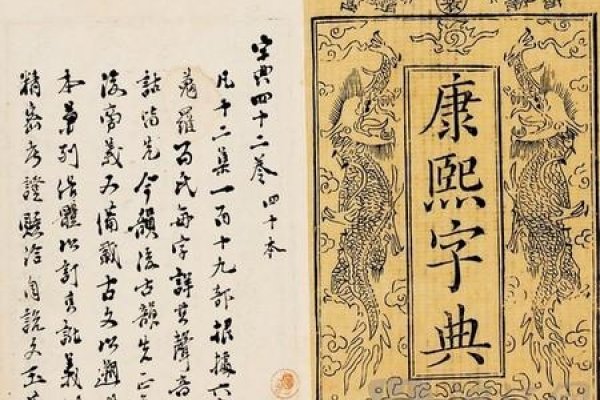 康熙字典
字典四十二卷 四十本
凡十二集一百十九部根據六
蒐羅百氏每字詳其聲音
詁皆先今韻後古韻先正
後旁義又備載古文以溯
本兼列俗體以訂其訛義
精密考證賅洽自說文玉